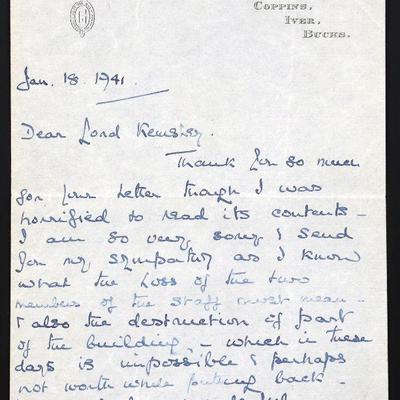 COPPINS,
IVER,
BUCKS.
Jan. 18. 1941.
Dear Lord Kemsley.
Thank you so much
for your letter though I was
horrified to read its contents -
I am so very sorry & send
you my sympathy as I know
what the loss of the two
members of the staff must mean -
& also the destruction of part
of the building, - which in these
days is impossible & perhaps
not worth while putting back -